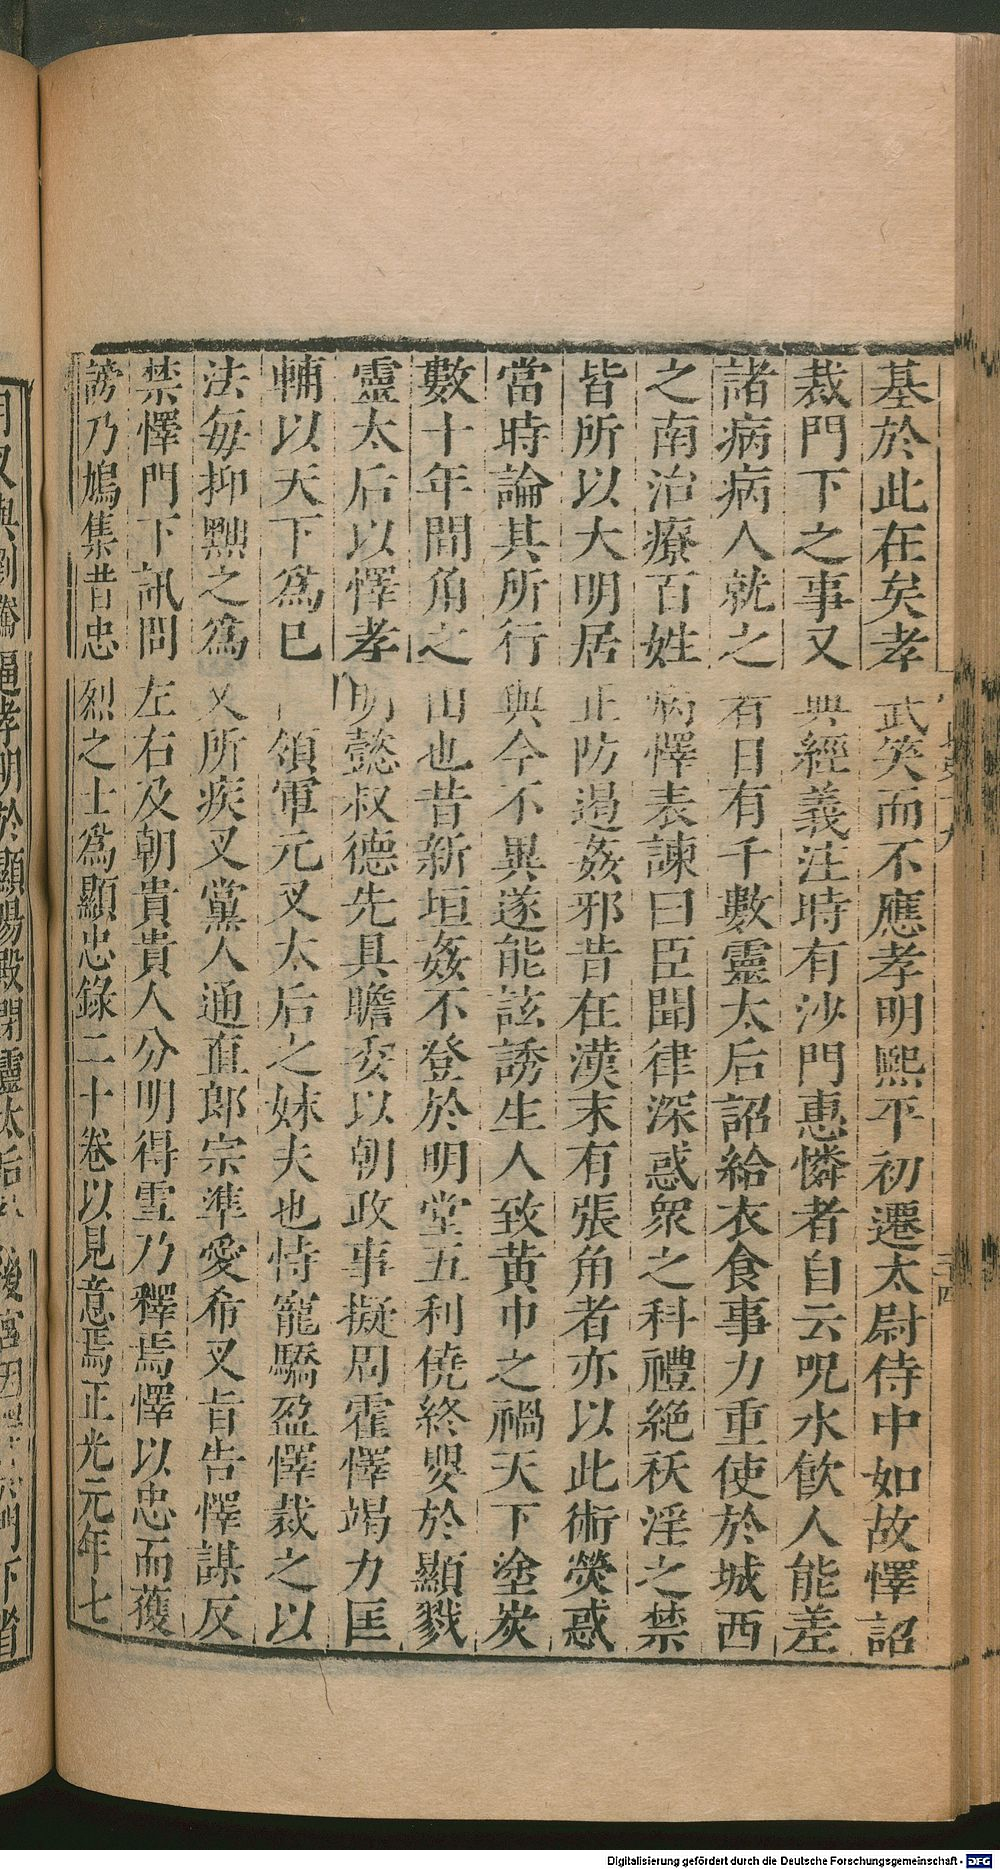 基於此在矣孝武笑而不應孝明熙平初遷太尉侍中如故懌詔
裁門下之事又典經義注時有沙門惠憐者自云呪水飮人能差
諸病病人就之者日有千數靈太后詔給衣食事力重使於城西
之南治療百姓病懌表諫曰臣聞律深惑衆之科禮絶秂淫之禁
皆所以大明居正防遏姦邪昔在漢末有張角者亦以此術熒惑
當時論其所行與今不異遂能詃誘生人致黄巾之禍天下塗炭
數十年間角之由也昔新垣姦不登於明堂五利僥終嬰於顯戮
靈太后以懌孝明懿叔德先具瞻委以朝政事擬周霍懌竭力匡
輔以天下爲己 領軍元叉太后之妹夫也恃寵驕盈懌裁之以
法毎抑黜之爲叉所疾叉黨人通直郎宗準愛希叉旨告懌謀反
禁懌門下訊問左右及朝貴貴人分明得雪乃釋焉懌以忠而獲
謗乃鳩集昔忠烈之士爲顯忠錄二十卷以見意焉正光元年七
月叉與劉騰逼孝明於顯陽殿閉靈太后 後宮 門下省
Digitalisierung gefördert durch die Deutsche Forschungsgemeinschaft - DFG